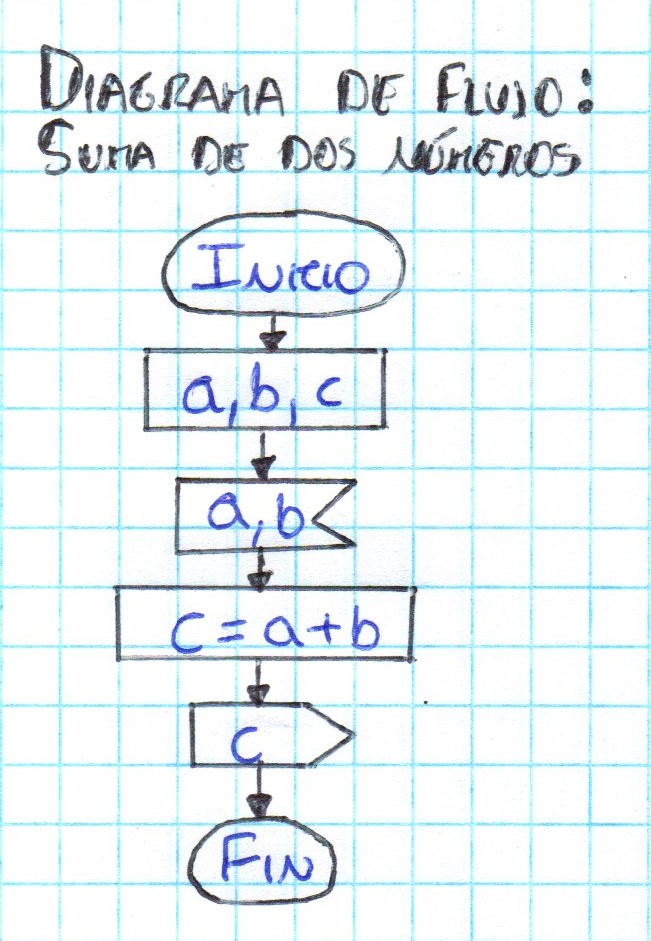 DIAGRAMA DE FLUJO:
SUMA DE DOS NÚMEROS
INICIO
a, b, c
a, b
c = a + b
c
FIN